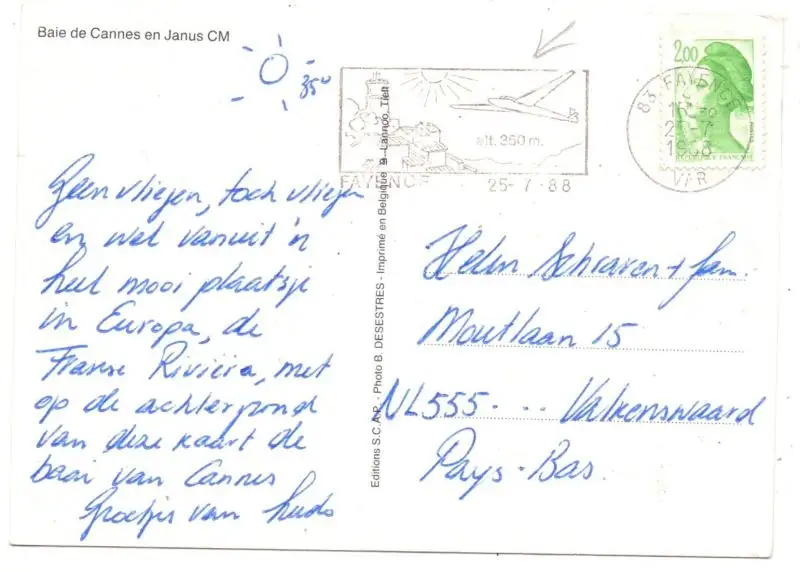 Baie de Cannes en Janus CM
35°
alt. 350 m.
FAYENCE 25-7-88
2,00
REPUBLIQUE FRANÇAISE
83 FAYENCE
1988
VAR
Geen vliegen, toch vliegen
en wel vanuit 'n
heel mooi plaatsje
in Europa, de
Franse Riviëra, met
op de achtergrond
van deze kaart de
baai van Cannes
Groetjes van
Editions S.C.A.P. - Photo B. DESESTRES - Imprimé en Belgique - Lannoo, Tielt
Helen Schraven + fam.
Moutlaan 15
NL555- .. Valkenswaard
Pays-Bas.